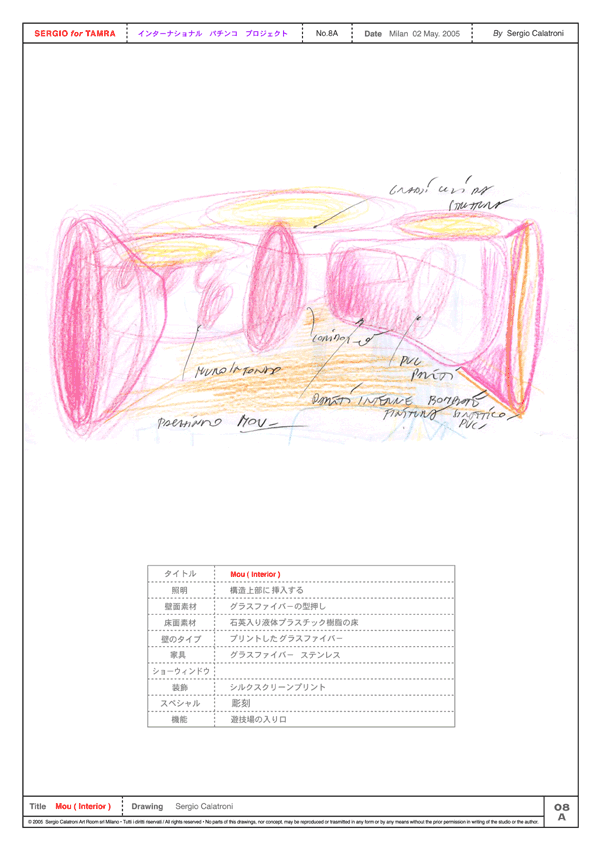 SERGIO for TAMRA
インターナショナル パチンコ プロジェクト
No.8A
Date Milan 02 May. 2005
By Sergio Calatroni
PVC
MOU
PVC
タイトル Mou ( Interior )
照明 構造上部に挿入する
壁面素材 グラスファイバーの型押し
床面素材 石英入り液体プラスチック樹脂の床
壁のタイプ プリントしたグラスファイバー
家具 グラスファイバー ステンレス
ショーウィンドウ
装飾 シルクスクリーンプリント
スペシャル 彫刻
機能 遊技場の入り口
Title Mou ( Interior )
Drawing Sergio Calatroni
08
A
© 2005 Sergio Calatroni Art Room srl Milano • Tutti i diritti riservati / All rights reserved • No parts of this drawings, nor concept, may be reproduced or trasmitted in any form or by any means without the prior permission in writing of the studio or the author.